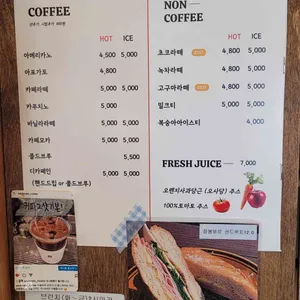 COFFEE
HOT ICE
아메리카노 4,500 5,000
아포가토 4,800
카페라떼 5,000 5,000
카푸치노 5,000 5,000
바닐라라떼 5,000 5,000
카페모카 5,000 5,000
콜드브루 5,500
디카페인 5,000 5,000
(핸드드립 or 콜드브루)
NON -
COFFEE
HOT ICE
초코라떼 4,800 5,000
녹차라떼 4,800 5,000
고구마라떼 4,800 5,000
밀크티 5,000
복숭아아이스티 4,000
FRESH JUICE — 7,000
오렌지사과당근 (오사당) 주스
100%토마토 주스